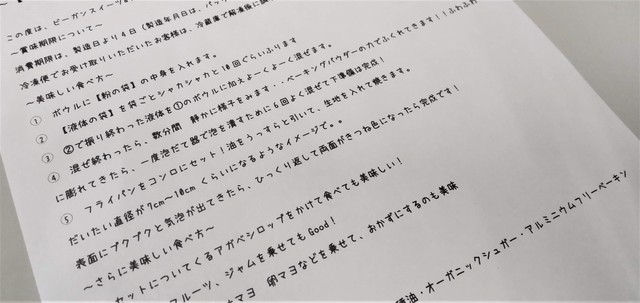 この度は、ビーガンスイーツ
～賞味期限について～
消費期限は、製造日より4日(製造年月日は、パッ
冷凍便でお受け取りいただいたお客様は、冷蔵庫で解凍後に
～美味しい食べ方～
① ボウルに【粉の袋】の中身を入れます。
② 【液体の袋】を袋ごとシャカシャカと10回ぐらいふります
③ ②で振り終わった液体を①のボウルに加えよーくよーく混ぜます。
④ 混ぜ終わったら、数分間 静かに様子をみます・・ベーキングパウダーの力でふくれてきます！！ふわふわ
に膨れてきたら、一度泡だて器で泡を潰すために6回よく混ぜて下準備は完成！
⑤ フライパンをコンロにセット！油をうっすらと引いて、生地を入れて焼きます。
だいたい直径が7cm～10cmくらいになるようなイメージで。。
表面にプクプクと気泡が出てきたら、ひっくり返して両面がきつね色になったら完成です！
～さらに美味しい食べ方～
セットについてくるアガベシロップをかけて食べても美味しい！
フルーツ、ジャムを乗せてもGood！
マヨ 卵マヨなどを乗せて、おかずにするのも美味
油・オーガニックシュガー・アルミニウムフリーベーキン